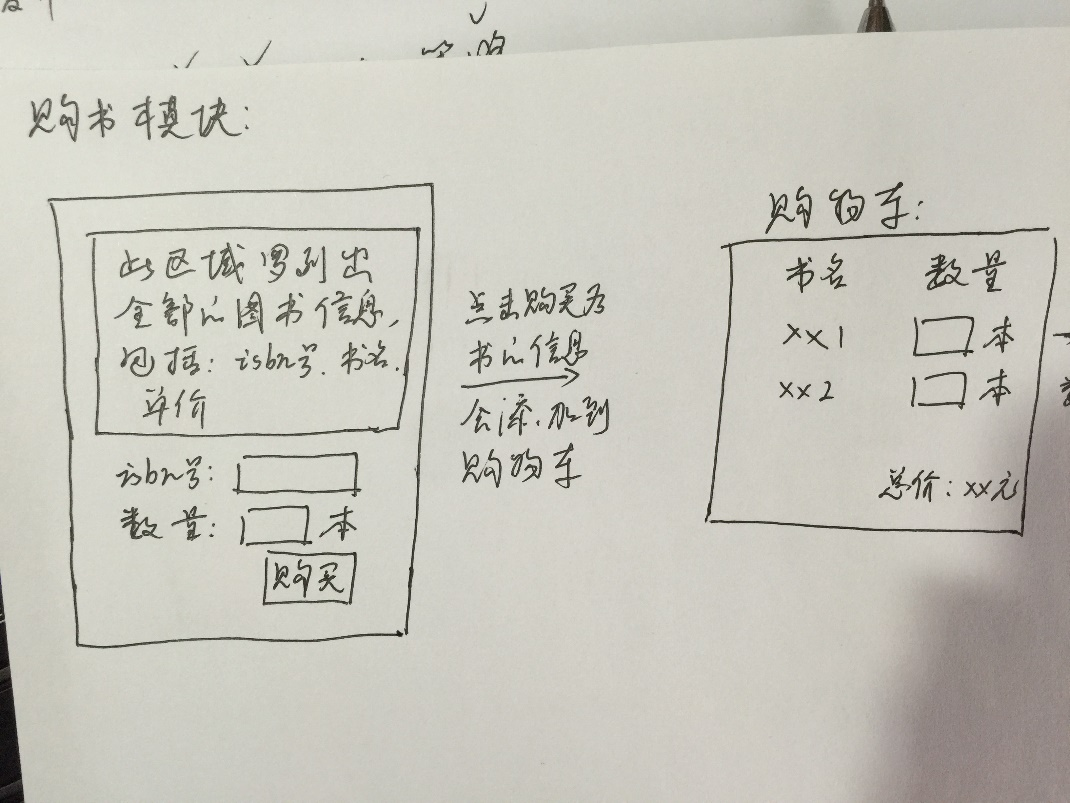 购书模块:
此区域罗列出
全部的图书信息,
包括: isbn号. 书名.
单价
isbn号:
数量: 本
购买
点击购买后
书的信息
会添加到
购物车
购物车:
书名 数量
xx1 本
xx2 本
总价: xx元